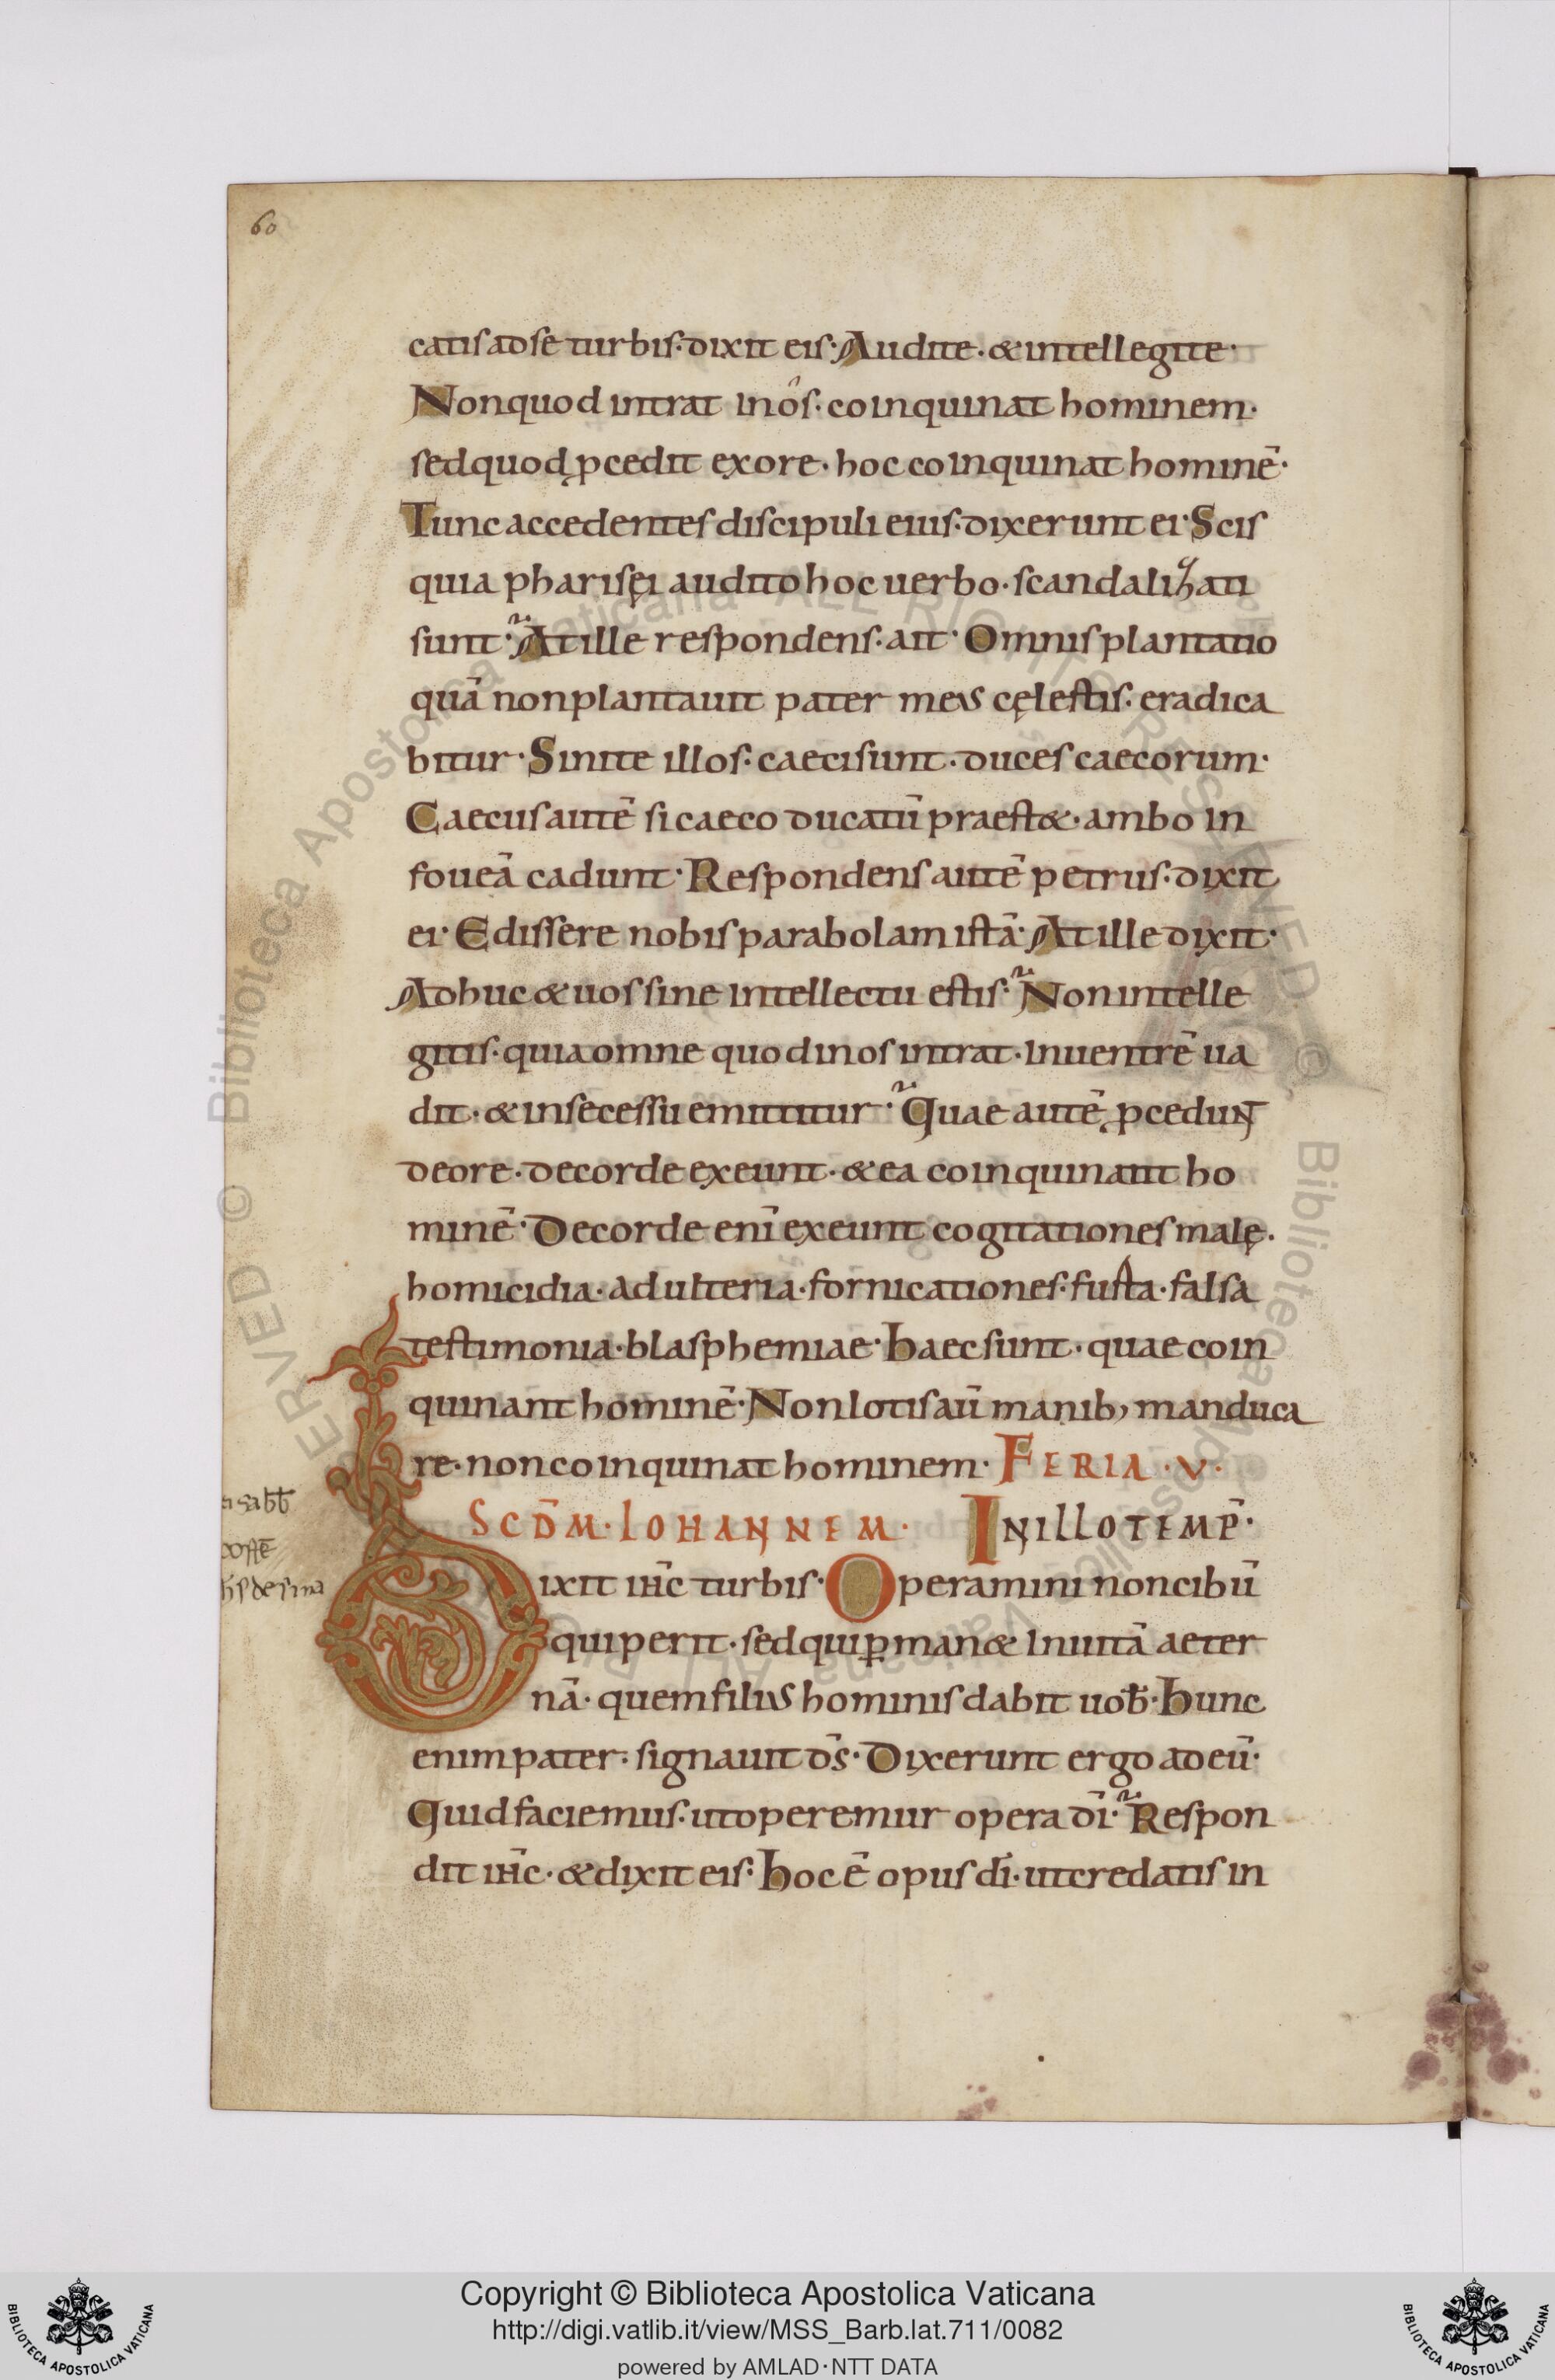 60
catis ad se turbis· dixit eis· Audite· & intellegite·
Non quod intrat in os· coinquinat hominem·
sed quod ꝓcedit ex ore· hoc coinquinat hominē·
Tunc accedentes discipuli eius· dixerunt ei· Scis
quia pharisęi audito hoc uerbo· scandalizati
sunt· At ille respondens· ait· Omnis plantatio
quā non plantauit pater meus cęlestis· eradica
bitur· Sinite illos· caeci sunt· duces caecorum·
Caecus autē si caeco ducatū praest&· ambo in
foueā cadunt· Respondens autē petrus· dixit
ei· Edissere nobis parabolam istā· At ille dixit·
Adhuc & uos sine intellectu estis· Non intelle
gitis· quia omne quod in os intrat· in uentrē ua
dit· & in secessu emittitur· Quae autē ꝓcedunt
de ore· de corde exeunt· & ea coinquinant ho
minē· De corde enī exeunt cogitationes malę·
homicidia· adulteria· fornicationes· furta· falsa
testimonia· blasphemiae· Haec sunt· quae coin
quinant hominē· Non lotis aū manib; manduca
re· non coinquinat hominem· FERIA · V ·
SCDM̄ · IOHANNEM · IN ILLO TEMP̄·
Dixit ih̄c turbis· Operamini non cibū
qui perit· sed qui ꝑman& in uitā aeter
nā· quem filius hominis dabit uob̄· Hunc
enim pater· signauit dś· Dixerunt ergo ad eū·
Quid faciemus· ut operemur opera dī· Respon
dit ih̄c· & dixit eis· Hoc ē opus dī· ut credatis in
sabb̄
Copyright © Biblioteca Apostolica Vaticana
http://digi.vatlib.it/view/MSS_Barb.lat.711/0082
powered by AMLAD·NTT DATA
BIBLIOTECA APOSTOLICA VATICANA
BIBLIOTECA APOSTOLICA VATICANA